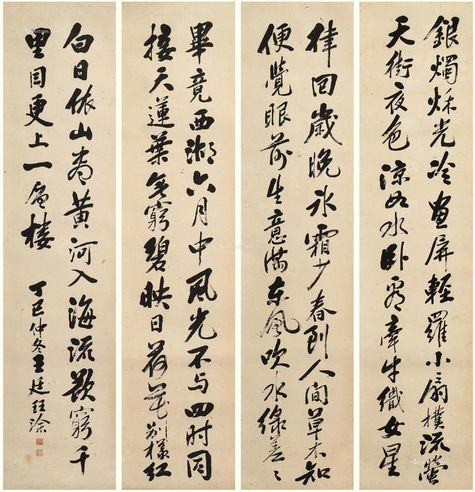 銀燭秋光冷畫屏輕羅小扇撲流螢
天街夜色涼如水卧看牽牛織女星
律回歲晚氷霜少春到人間草木知
便覺眼前生意滿東風吹水綠差〻
畢竟西湖六月中風光不与四时同
接天蓮葉無窮碧映日荷花別樣紅
白日依山盡黃河入海流欲窮千
里目更上一層樓
丁巳仲冬王廷